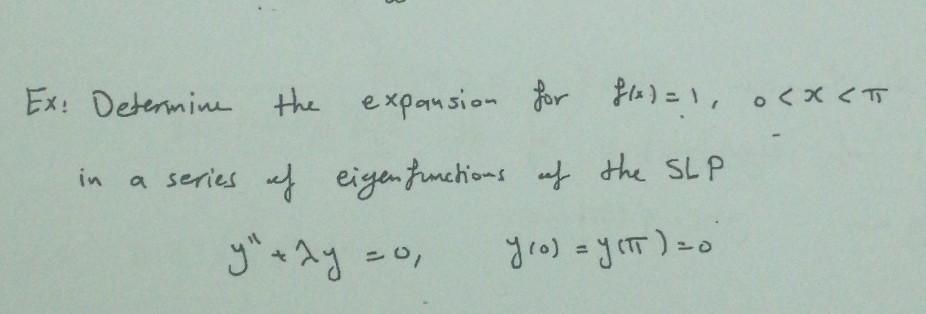 Ex: Determine the expansion for f(x) = 1, 0 < x < π
in a series of eigenfunctions of the SLP
y'' + λy = 0, y(0) = y(π) = 0